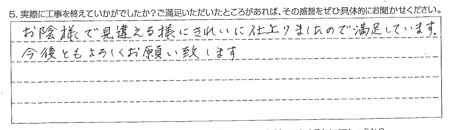 5. 実際に工事を終えていかがでしたか？ご満足いただいたところがあれば、その感想をぜひ具体的にお聞かせください。
お陰様で見違える様にきれいに仕上りましたので満足しています。
今後ともよろしくお願い致します